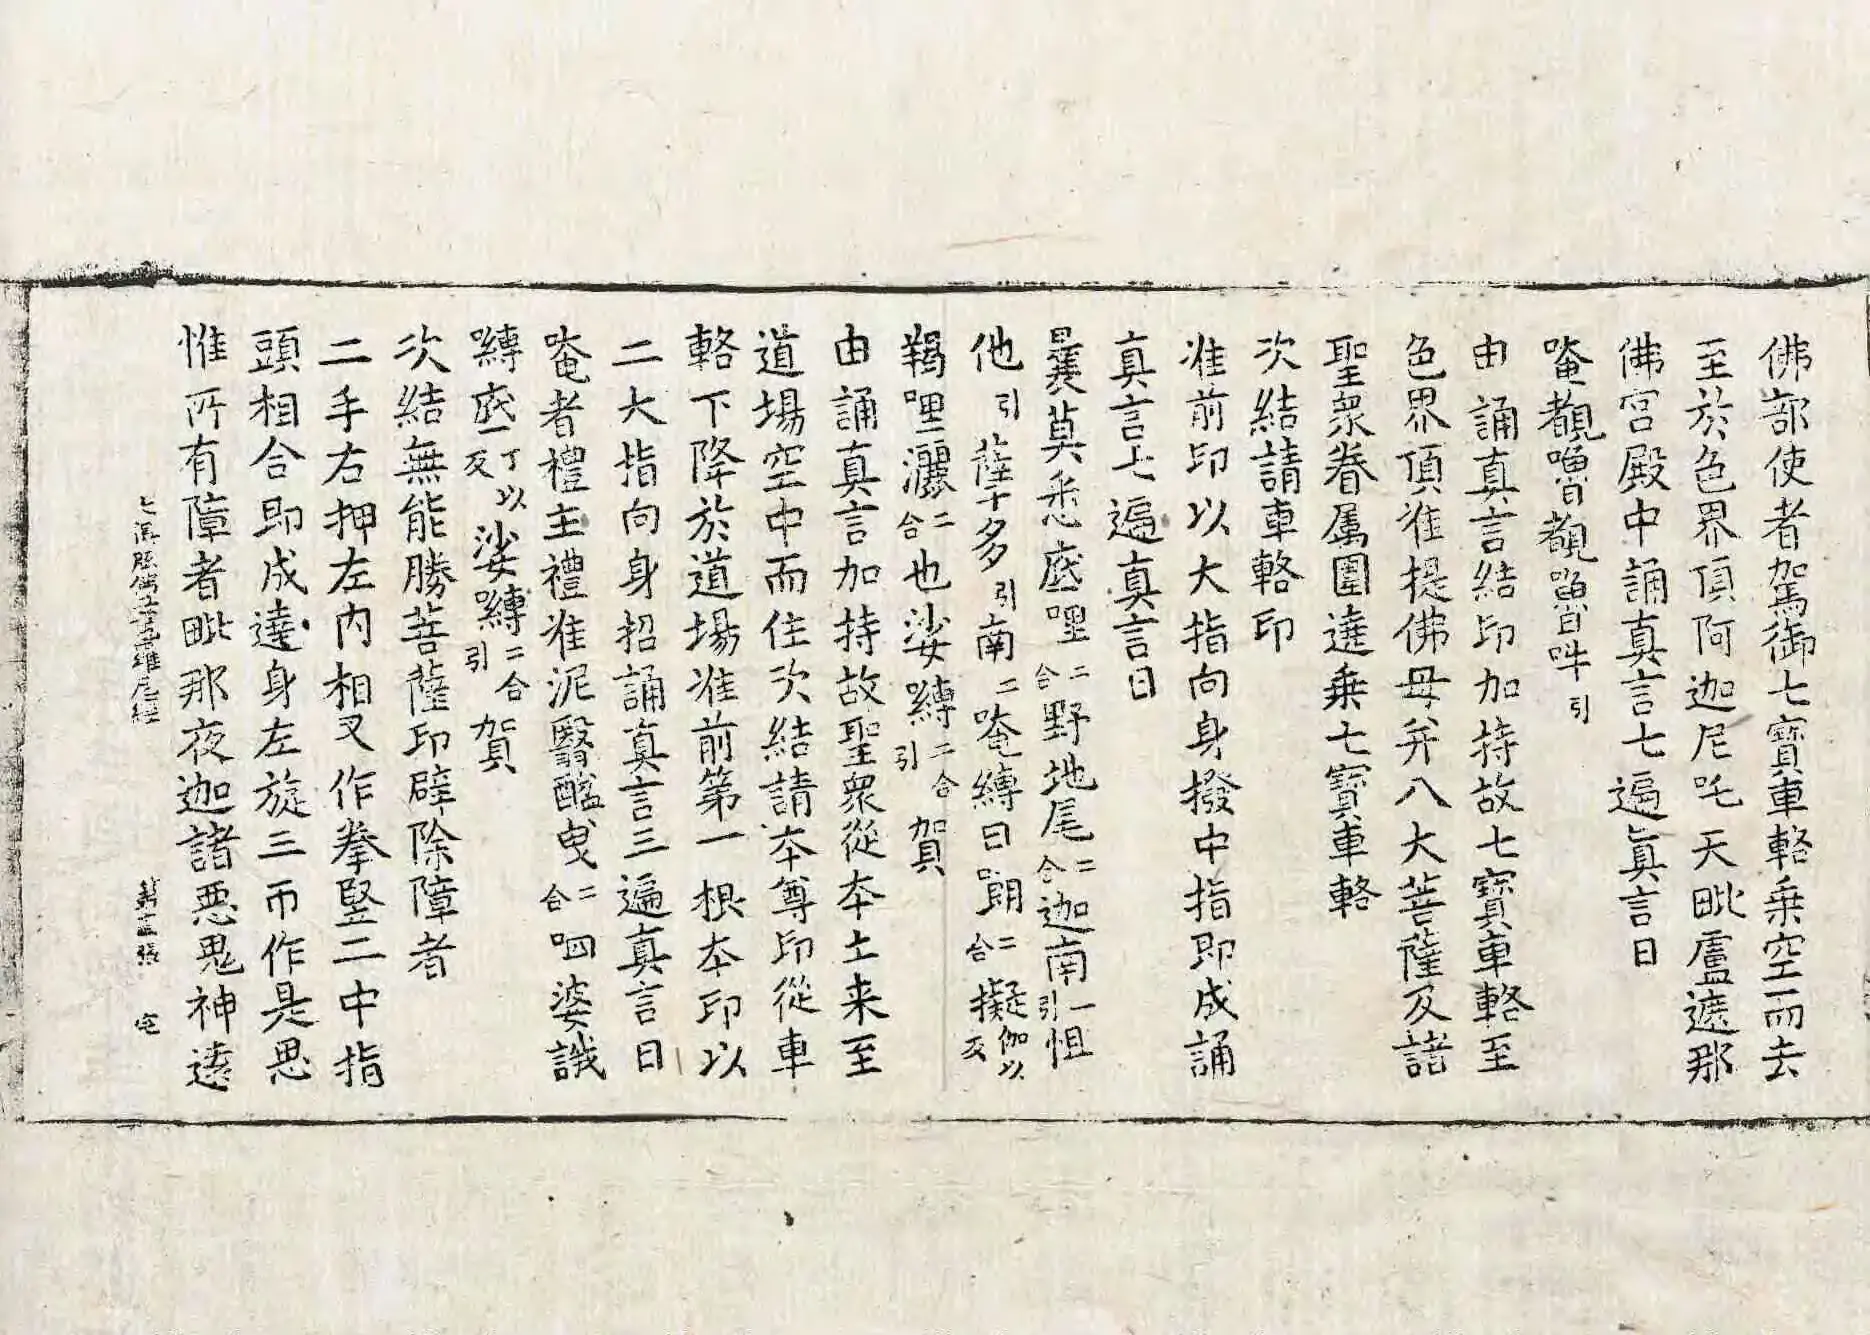 佛部使者駕御七寶車輅乗空而去
至於色界頂阿迦尼吒天毗盧遮那
佛宮殿中誦真言七遍真言曰
唵覩嚕覩嚕吽引
由誦真言結印加持故七寶車輅至
色界頂准提佛母并八大菩薩及諸
聖衆眷属圍遶乗七寶車輅
次結請車輅印
准前印以大指向身撥中指即成誦
真言七遍真言曰
曩莫悉底哩二合野地尾二合迦南一引怛
他引薩多引南二唵縛曰朗二合擬伽以反
羯哩灑二合也娑縛二合引賀
由誦真言加持故聖衆從本土来至
道場空中而住次結請本尊印從車
輅下降於道場准前第一根本印以
二大指向身招誦真言三遍真言曰
唵者禮主禮准泥翳醯曳二合呬婆誐
嚩底一丁以反娑嚩二合引賀
次結無能勝菩薩印辟除障者
二手右押左内相叉作拳竪二中指
頭相合即成遶身左旋三帀作是思
惟所有障者毗那夜迦諸悪鬼神遠